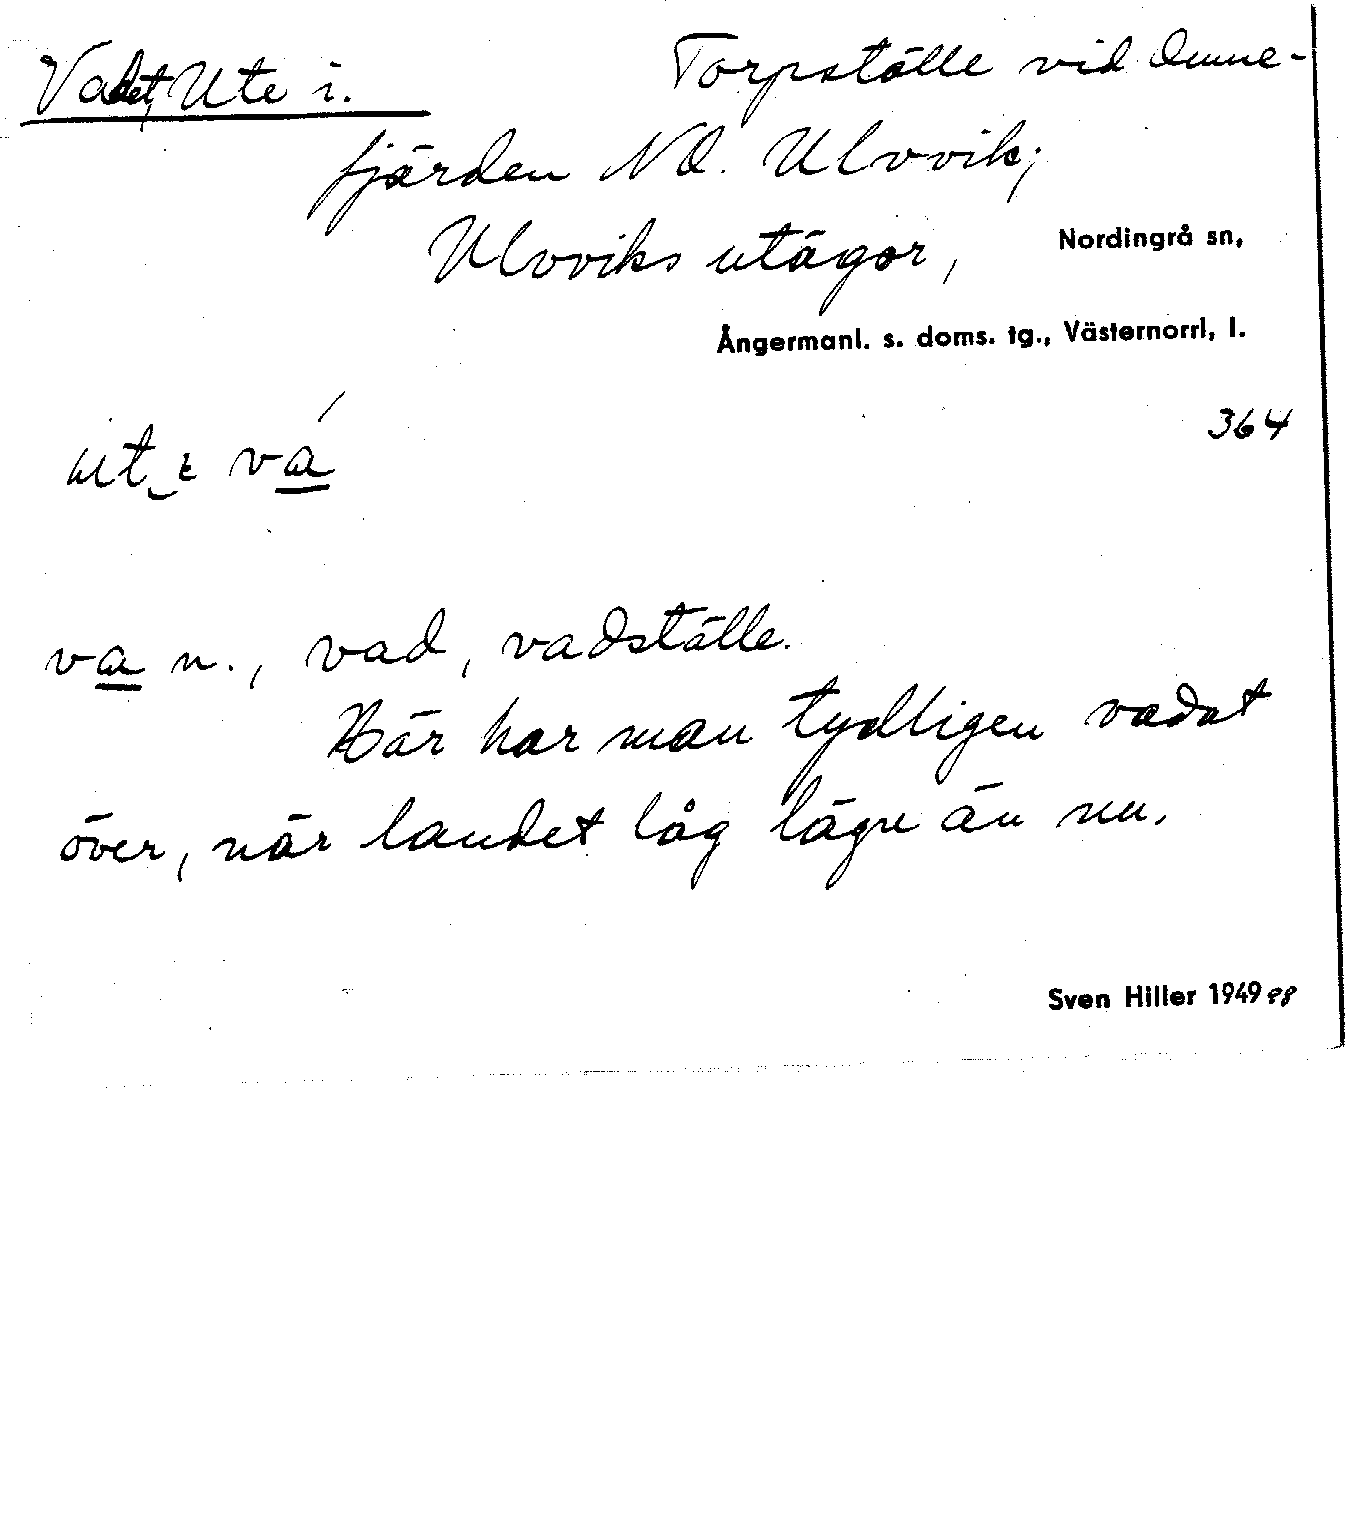 Vadet, Ute i.
Torpställe vid Omne-
fjärden NO. Ulvvik;
Ulvviks utägor,
Nordingrå sn,
Ångermanl. s. doms. tg., Västernorrl, l.
364
va n., vad, vadställe.
Här har man tydligen vadat
över, när landet låg lägre än nu.
Sven Hiller 1949